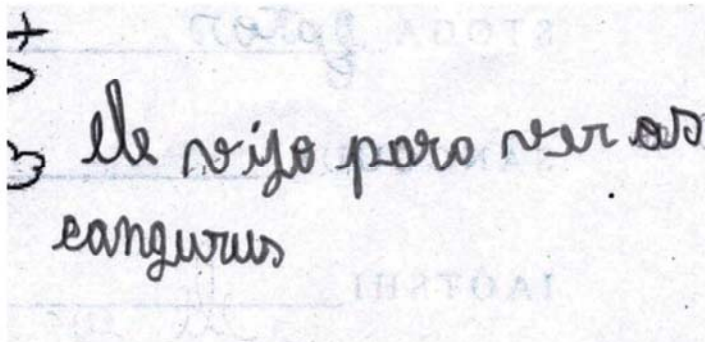 ele vijo para ver os
cangurus